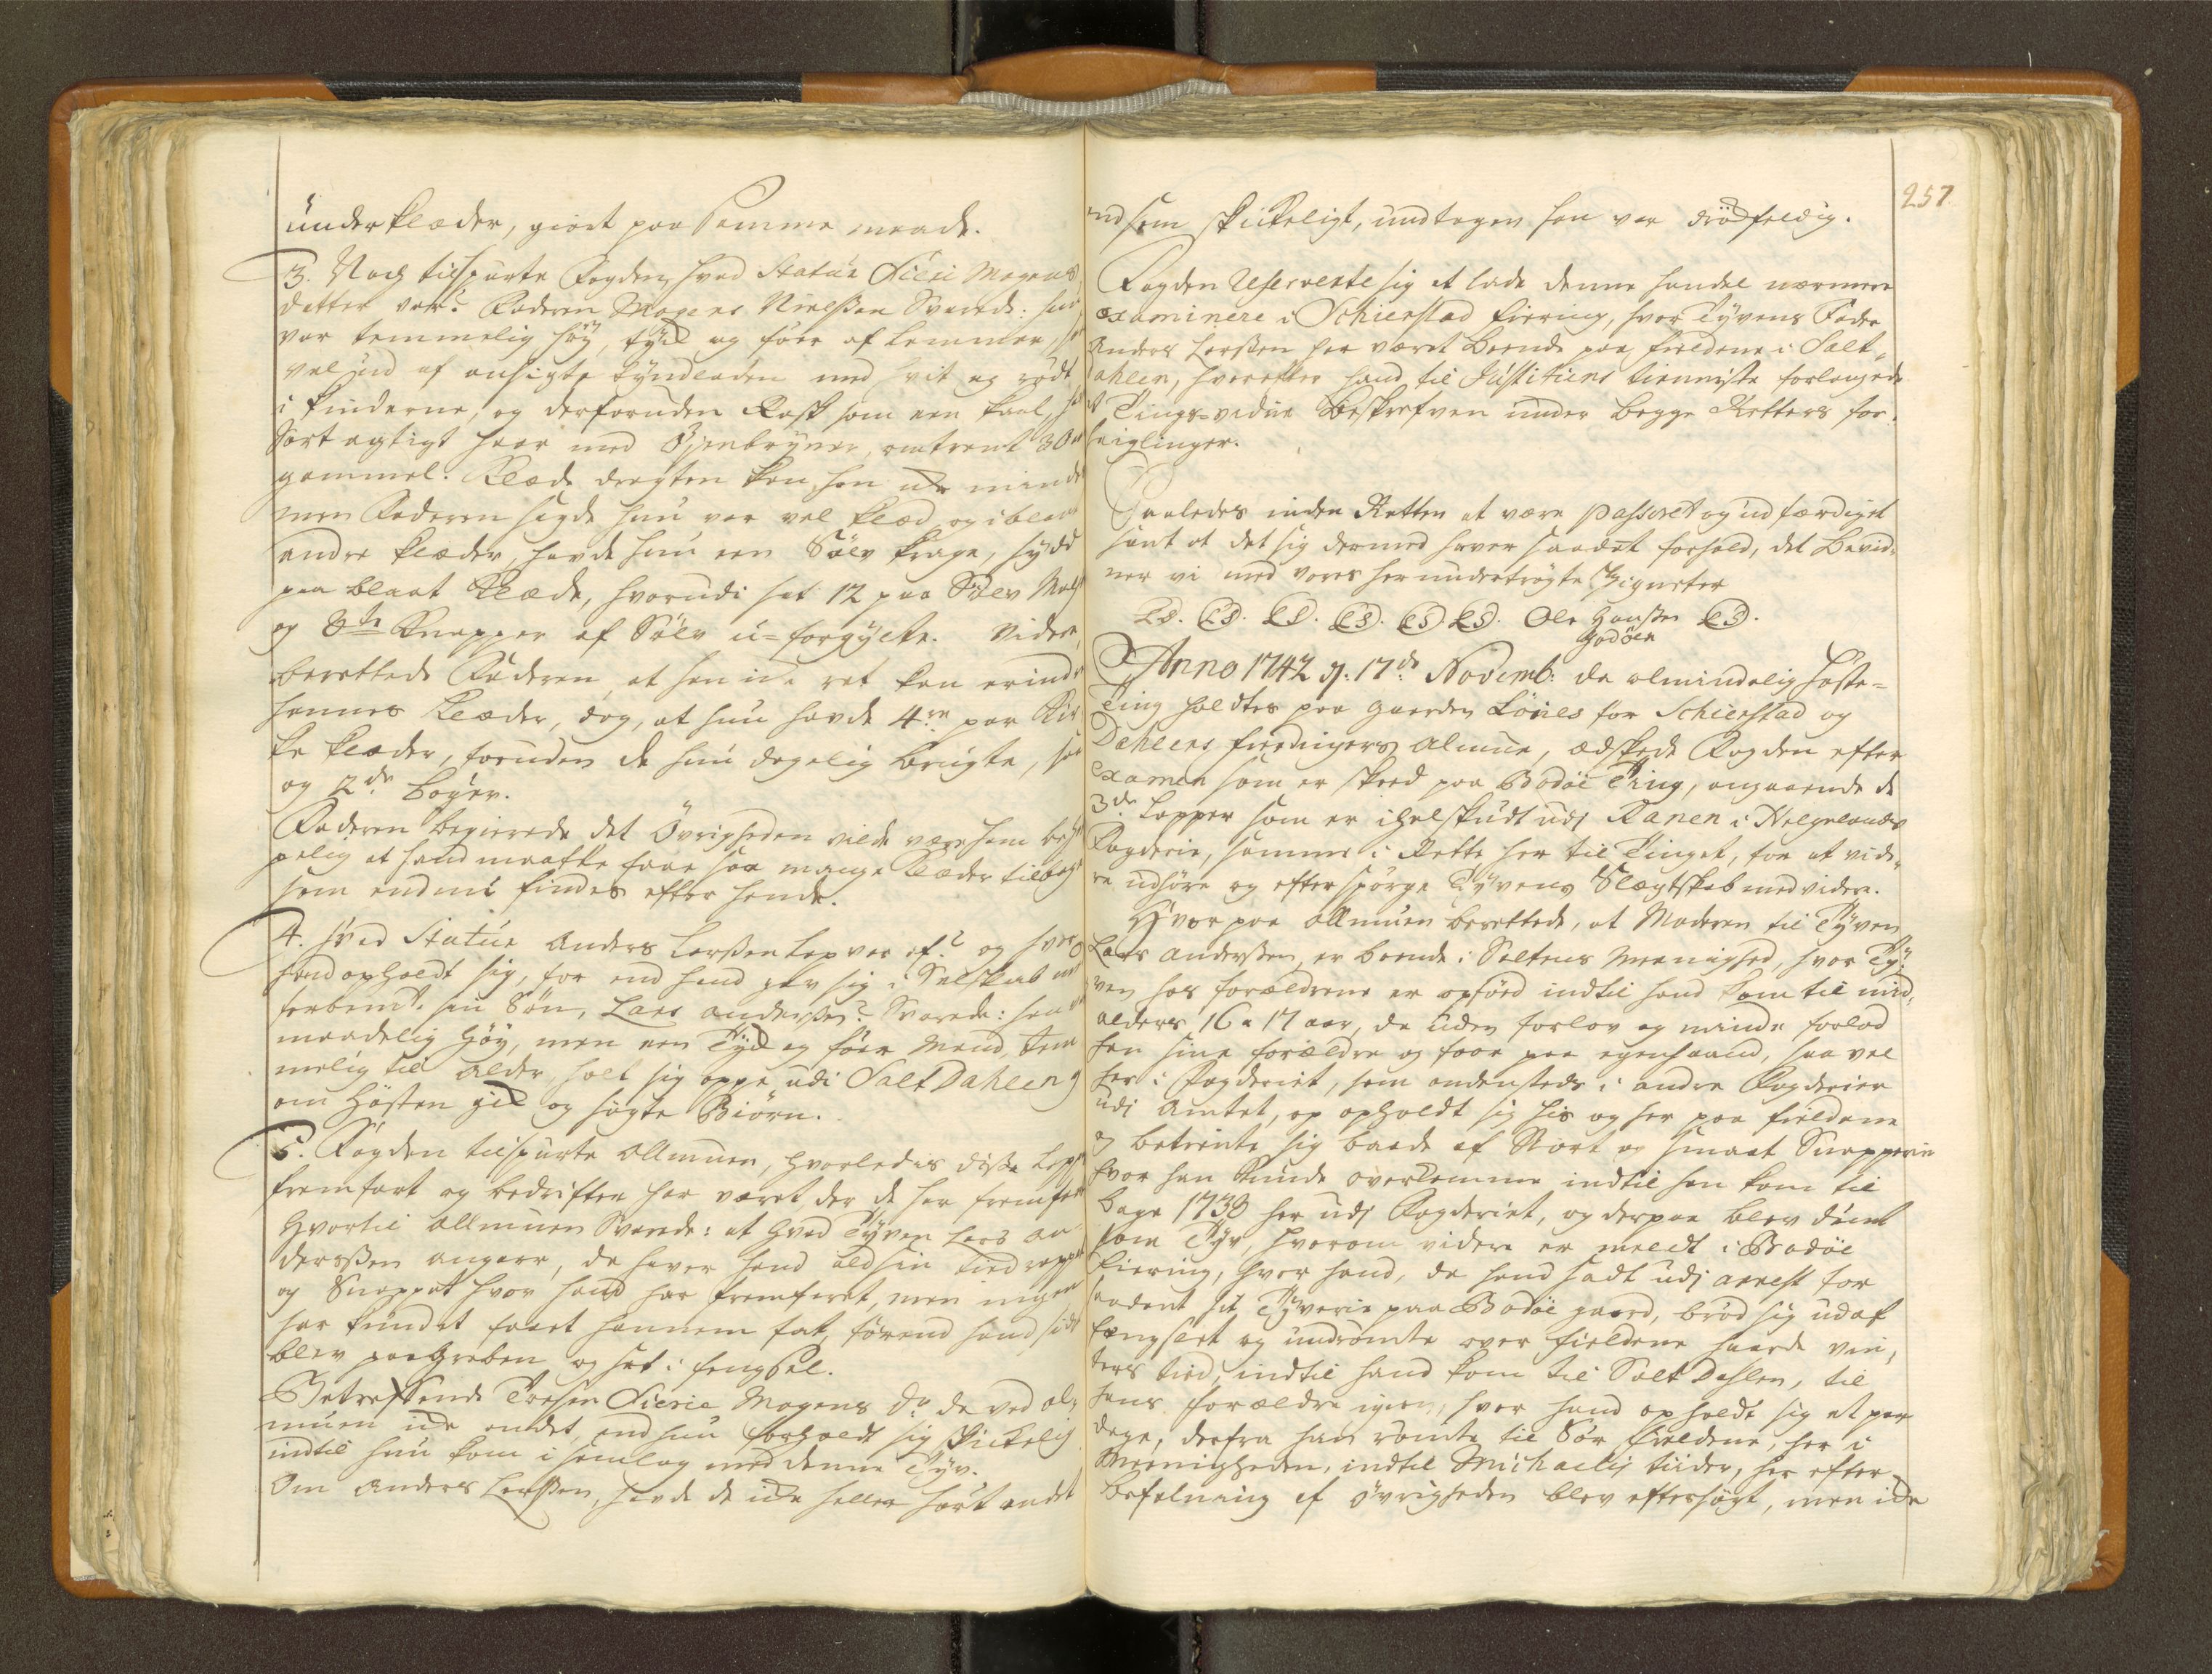 underklæder, giort paa samme maade.
3. Nock tilspurte Fogden, hvad Statúr Siri Mogens
datter var? Faderen Mogens Nielssen Svarede: hun
var temmelig høy, tyck og före af Lemmer,
vel ud af ansigte kyndladen med hvit og rödt
i kinderne, og desforuden Rask som een karl,
Sort agtigt haar med Øjenbryner, omtrent 30
gammel. Klæde dragten kan han icke minde
men Faderen sagde hun var vel klæd og iblant
andre klæder, havde hun een Sölv krage, sydd
paa blaat klæde, hvorudi sat 12 par Sölv
og 8te Knapper af Sölv u-forgylte. Videre
berettede Faderen, at han icke ret kan erindre
hennes klæder, dog, at hun havde 4re par Kir
ke klæder, foruden de hun dagelig brugte,
og 2de
Faderen begierede det Övrigheden vilde være ham behie
pelig at hand maatte faae saa mange klæder tilbage
som endnu findes efter hende.
4. Hvad Statúr Anders Larssen Lap var af? og hvor
hand opholdt sig, for end hand gav sig i Selskab med
forbemte sin Sön, Lars anderssen? Svarede: hand
maadelig høy, men een Tyck og före Mand, tem
melig til Alder, holt sig oppe udi SaltDahlen og
om Høsten gick og søgte Biörn.
5. Fogden tilspurte Allmuen, hvorledis disse Lapper
fremfart og bedrifter har været, der de har fremfaret
Hvortil Allmuen Svarede: at hvad Tyven Lars an
derssen angaar, da haver hand ald sin tied rappet
og Snappet hvor hand har fremfaret, men ingen
har kundet faaet hannem fat, förend hand sidst
blev paagreben og sat i fengsel.
Betreffende Tøsen Sirie Mogens Dr. da ved al-
muen icke andet, end hun forholdt sig skickelig
indtil hun kom i samlag med denne Tyv.
Om Anders Larssen, havde de icke heller hört andet
257
end som skickeligt, undtagen han var drickfeldig.
Fogden Reserverte sig at lade denne handel nærmere
examinere i Schierstad fiering, hvor Tyvens Fader
Anders Larssen har været Boende paa fieldene i Salt-
dahlen, hvorefter hand til Justitiens tienniste forlangede
et Tings-vidne Beskrefven under begge Retters for-
seiglinger.
Saaledes inden Retten at være passeret og udfærdiget
samt at det sig dermed haver saadat forhold, det Bevid-
ner vi med vores hernundertrögte Signeter
LS. LS. LS. LS. LS. LS. Ole Hanssen LS.
Godöen
Anno 1742 d. 17de Novemb: da almindelig høste-
Ting holdtes paa gaarden Lönes for Schierstad og
Dahlens fierdingers Almue, ædskede Fogden efter
Examen som er skeed paa Bodöe Ting, angaaende de
3de Lapper som er ihielskudt udj Ranen i Helgelands
Fogderie, samme i Rette her til Tinget, for at vide-
re udhøre og efterspörge Tyvens Slægtskab med videre.
Hvor paa allmuen berettede, at Moderen til Tyven
Lars anderssen, er boende i Saltens Meenighed, hvor Ty-
ven hos forældrene er opföed indtil hand kom til mid-
alders, 16 a 17 aar, da uden forlov og minde forlod
han sine forældre og foor paa egenhaand, saa vel
her i Fogderiet, som andensteds i andre Fogderier
udj Amtet, og opholdt sig his og her paa fieldene
og betiente sig baade af Stort og smaat Snapperie
hvor han kunde overkomme indtil han kom til
Bage 1738 her udj Fogderiet, og derpaa blev dömt
som Tyv, hvorom videre er meldt i Bodöe
fiering, hvor hand, da hand sadt udj arrest for
saadant sit Tyverie paa Bodöe gaard, bröd sig ud af
fengslet og undrömte over fieldene haarde vin-
ters tied, indtil hand kom til Salt Dahlen, til
hans forældre igien, hvor hand opholdt sig et par
dage, derfra han römte til Sör fieldene, her i
Menigheden, indtil Michaelis tiider, her efter
befalning af övrigheden blev eftersøgt, men icke